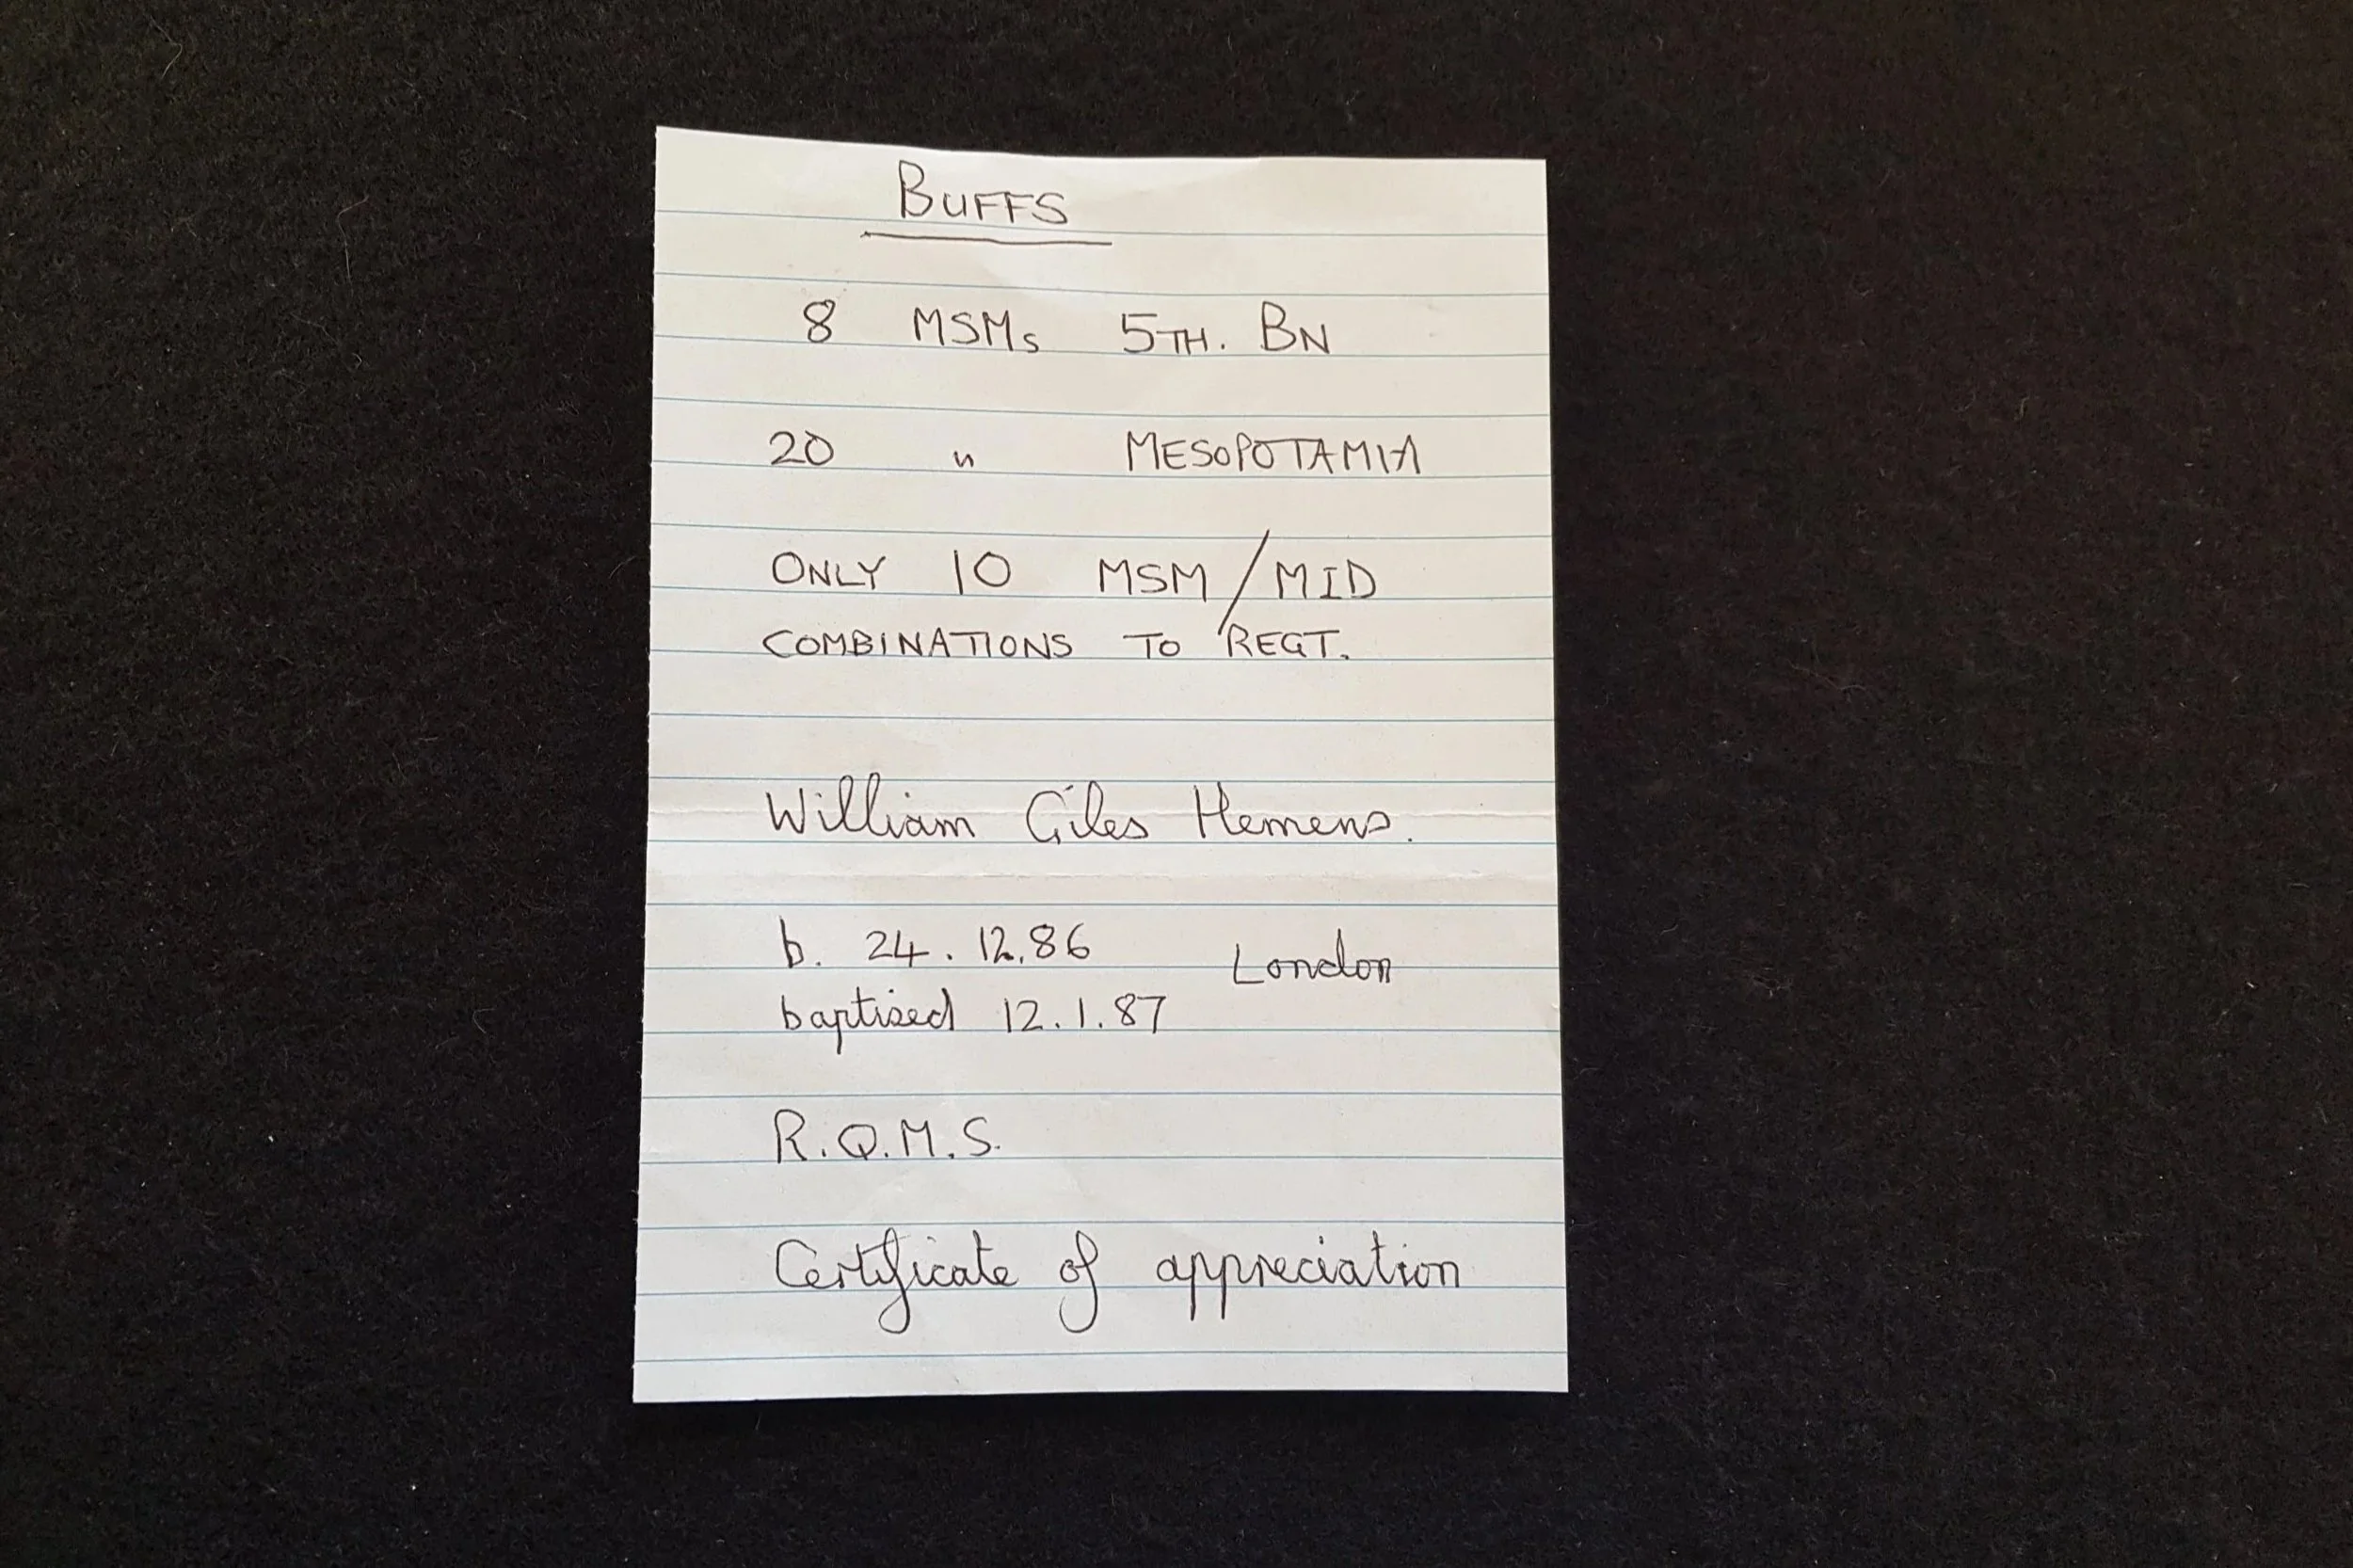 BUFFS
8 MSMs 5TH. BN
20 " MESOPOTAMIA
ONLY 10 MSM/MID
COMBINATIONS TO REGT.
William Giles Hemens.
b. 24.12.86 London
baptised 12.1.87
R.Q.M.S.
Certificate of appreciation